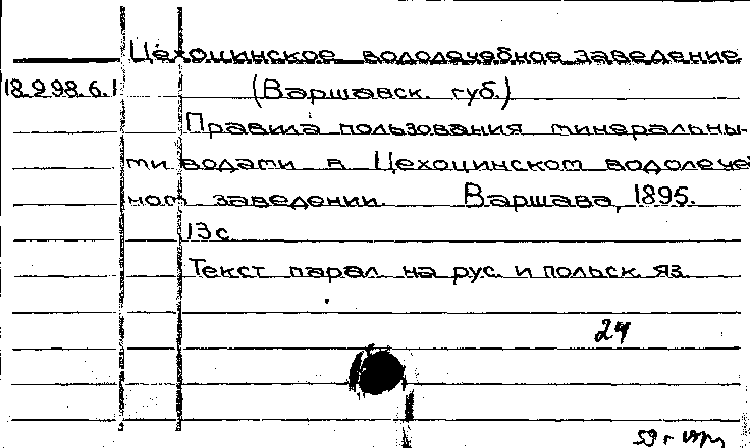 Цехоцинское водолечебное заведение
18.998.6.1
(Варшавск. губ.)
Правила пользования минеральны-
ми водами в Цехоцинском водолече
ном заведении. Варшава, 1895.
13с.
Текст парал. на рус. и польск. яз.
24
59 г